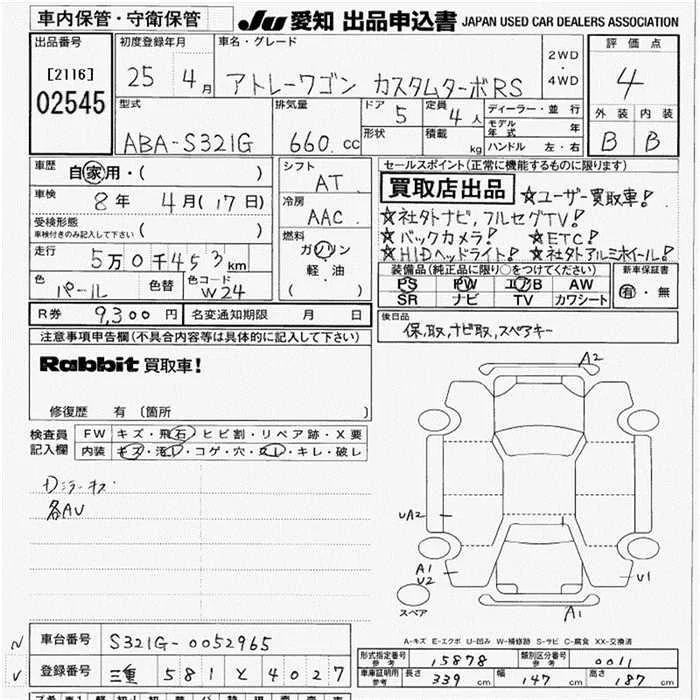 車内保管・守衛保管
JU 愛知 出品申込書 JAPAN USED CAR DEALERS ASSOCIATION
出品番号
[2116]
02545
初度登録年月
25年 4月
車名・グレード
アトレーワゴン カスタムターボRS
2WD
・
4WD
評価点
4
外装 内装
B B
型式
ABA-S321G
排気量
660.cc
ドア
5
形状
定員
4人
積載
kg
ディーラー・並行
モデル年式 年
ハンドル 左・右
車歴
自家用・( )
車検
8年 4月(17日)
受検形態
車検付きのみ記入して下さい ( )
走行
5万0千453km
色
パール
色替
色コード
W24
シフト
AT
冷房
AAC
燃料
ガソリン
軽・油
( )
セールスポイント(正常に機能するものに限ります)
買取店出品 ☆ユーザー買取車!
☆社外ナビ,フルセグTV!
☆バックカメラ! ☆ETC!
☆HIDヘッドライト! ☆社外アルミホイール!
装備品(純正品に限り○をつけてください)
PS PW エアB AW
SR ナビ TV カワシート
新車保証書
有・無
R券 9,300円 名変通知期限 月 日
後日品
保,取,ナビ取,スペアキー
注意事項申告欄(不具合内容等は具体的に記入して下さい)
Rabbit 買取車!
修復歴 有 〔箇所 〕
検査員
記入欄
FW キズ・飛石・ヒビ割・リペア跡・X要
内装 キズ・汚レ・コゲ・穴・スレ・キレ・破レ
Dミラーキズ
各AU
A2
UA2
A1
U2
U1
A1
スペア
A-キズ E-エクボ U-凹み W-補修跡 S-サビ C-腐食 XX-交換済
N
車台番号 S321G-0052965
V
登録番号 三重 581 と 4027
形式指定番号
参考
15878
類別区分番号
参考
0011
車庫証明用
参考
長さ 339cm 幅 147cm 高さ 187cm